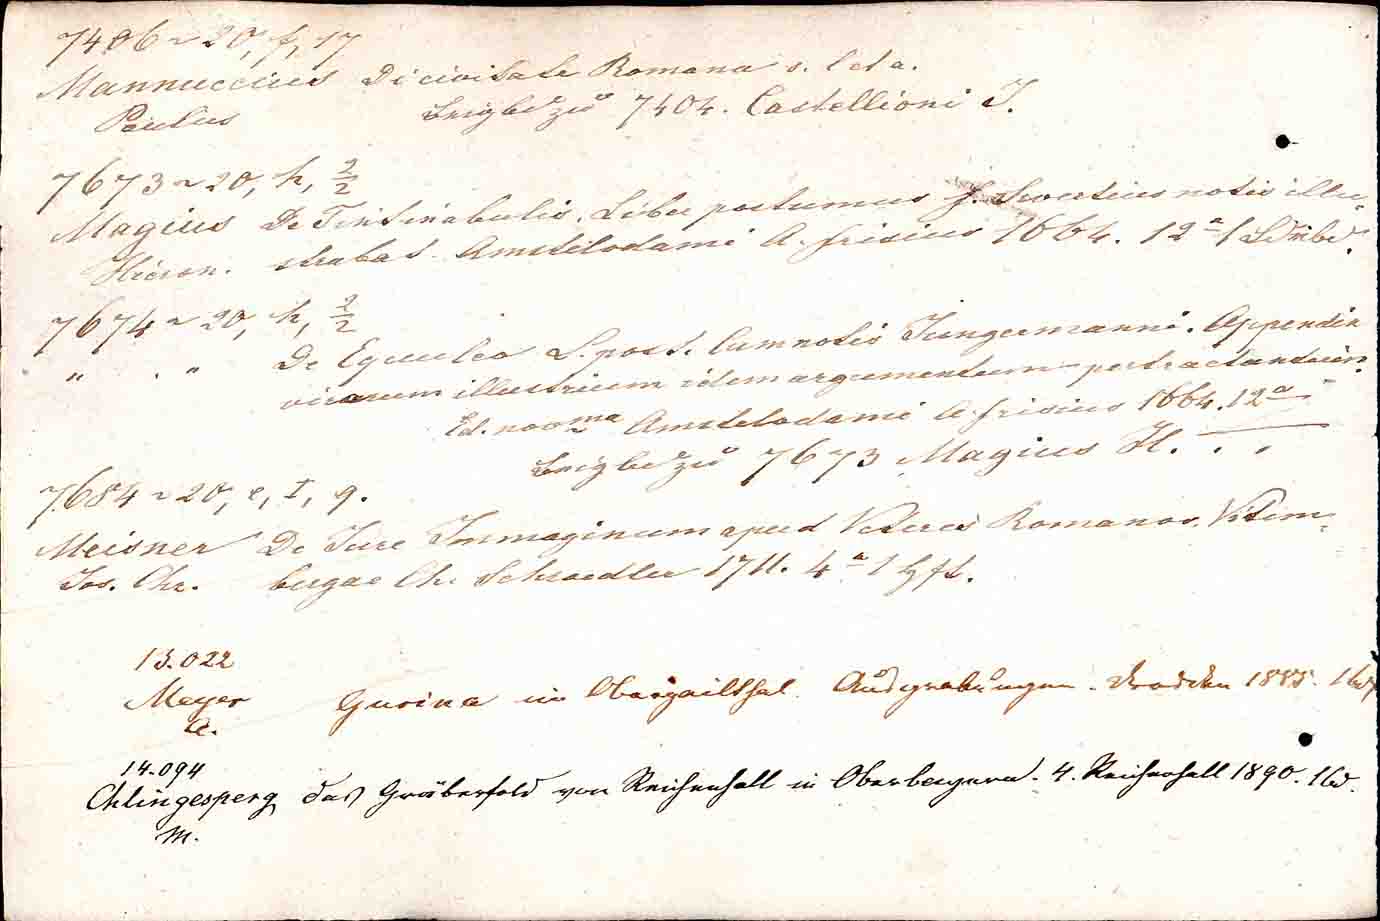 7406 ~ 20, f, 17
Mannuccius De civitate Romana s. l. et a.
Paulus Beigb. zu 7404. Castellioni J.
7673 ~ 20, h, 2/2
Magius De Tintinabulis. Liber postumus f. Swertius notis illu-
Hieron. strabat. Amstelodami A. Frisius 1664. 12° 1 Ldrbd.
7674 ~ 20, h, 2/2
" . " De Equuleo L. post. Cum notis Jungermanni. Appendix
virorum illustrium idem argumentum pertractantium.
Ed. novma Amstelodami A. Frisius 1664. 12°
Beigb. zu 7673 Magius H. . .
7684 ~ 20, e, I, 9.
Meisner De Jure Immaginum apud Veteres Romanos. Vitem-
Jos. Chr. bergae Chr. Schroedter 1711. 4° 1 Hft.
13.022
Meyer Gurina im Obergailthal. Ausgrabungen. Dresden 1885. 1
A.
14.094
Chlingesperg Das Gräberfeld von Reichenhall in Oberbayern. 4. Reichenhall 1890. 1 Bd.
M.